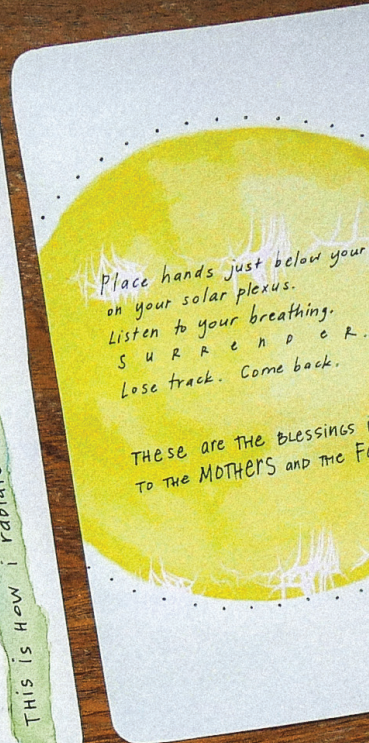 Place hands just below your
on your solar plexus.
Listen to your breathing.
S U R R e n D e R.
Lose track. Come back.
THeSe are THE BLESSINGS
TO THE MOTHERS AND THE
THis is How i radiate